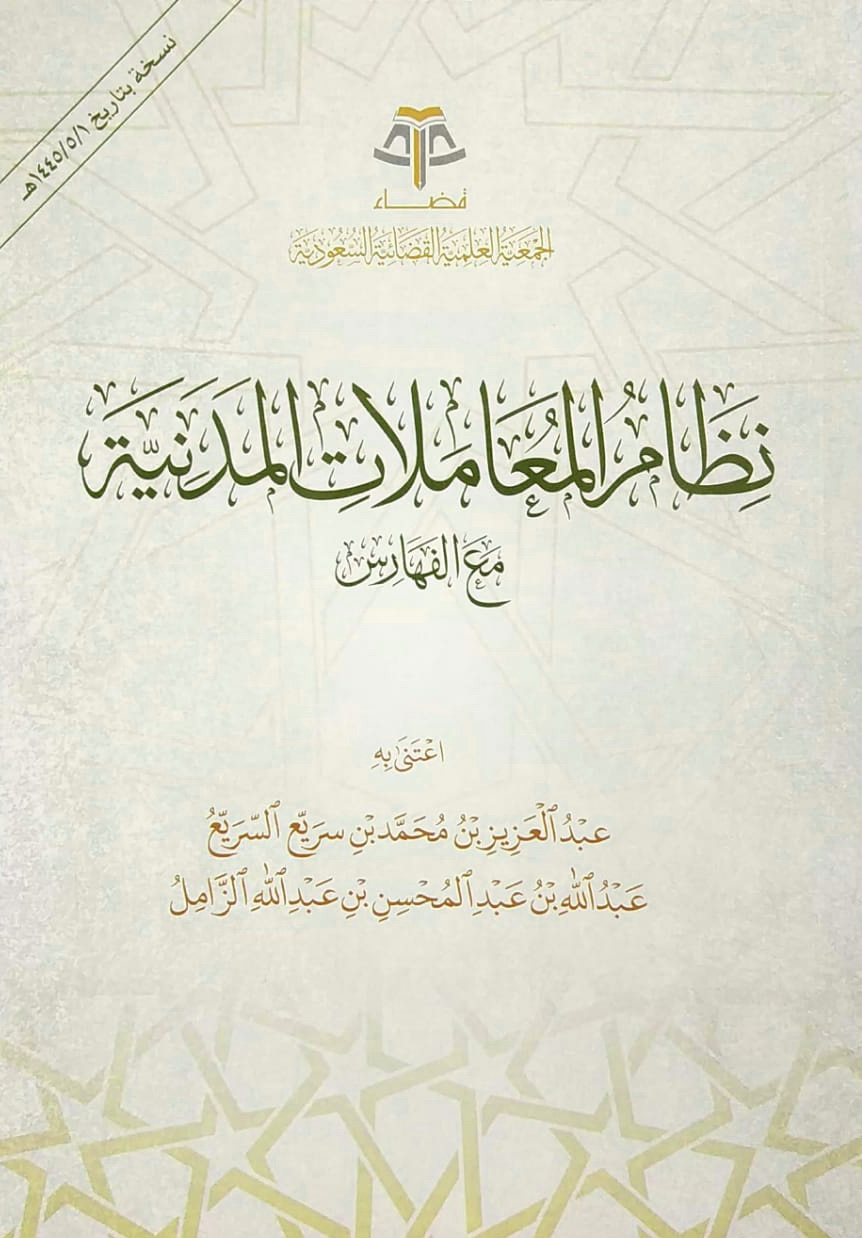 نسخة بتاريخ ١٤٤٥/٥/١هـ
قضاء
الجمعية العلمية القضائية السعودية
نِظَامُ المُعَامَلَاتِ المَدَنِيَّة
مَعَ الفَهَارِس
اعْتَنَى بِهِ
عَبْدُ ٱلْعَزِيزِ بْنُ مُحَمَّد بْنِ سريِّع ٱلسّريِّعُ
عَبْدُ ٱللَّهِ بْنُ عَبْدِ ٱلمُحْسِنِ بْنِ عَبْدِ ٱللَّهِ ٱلزَّامِلُ